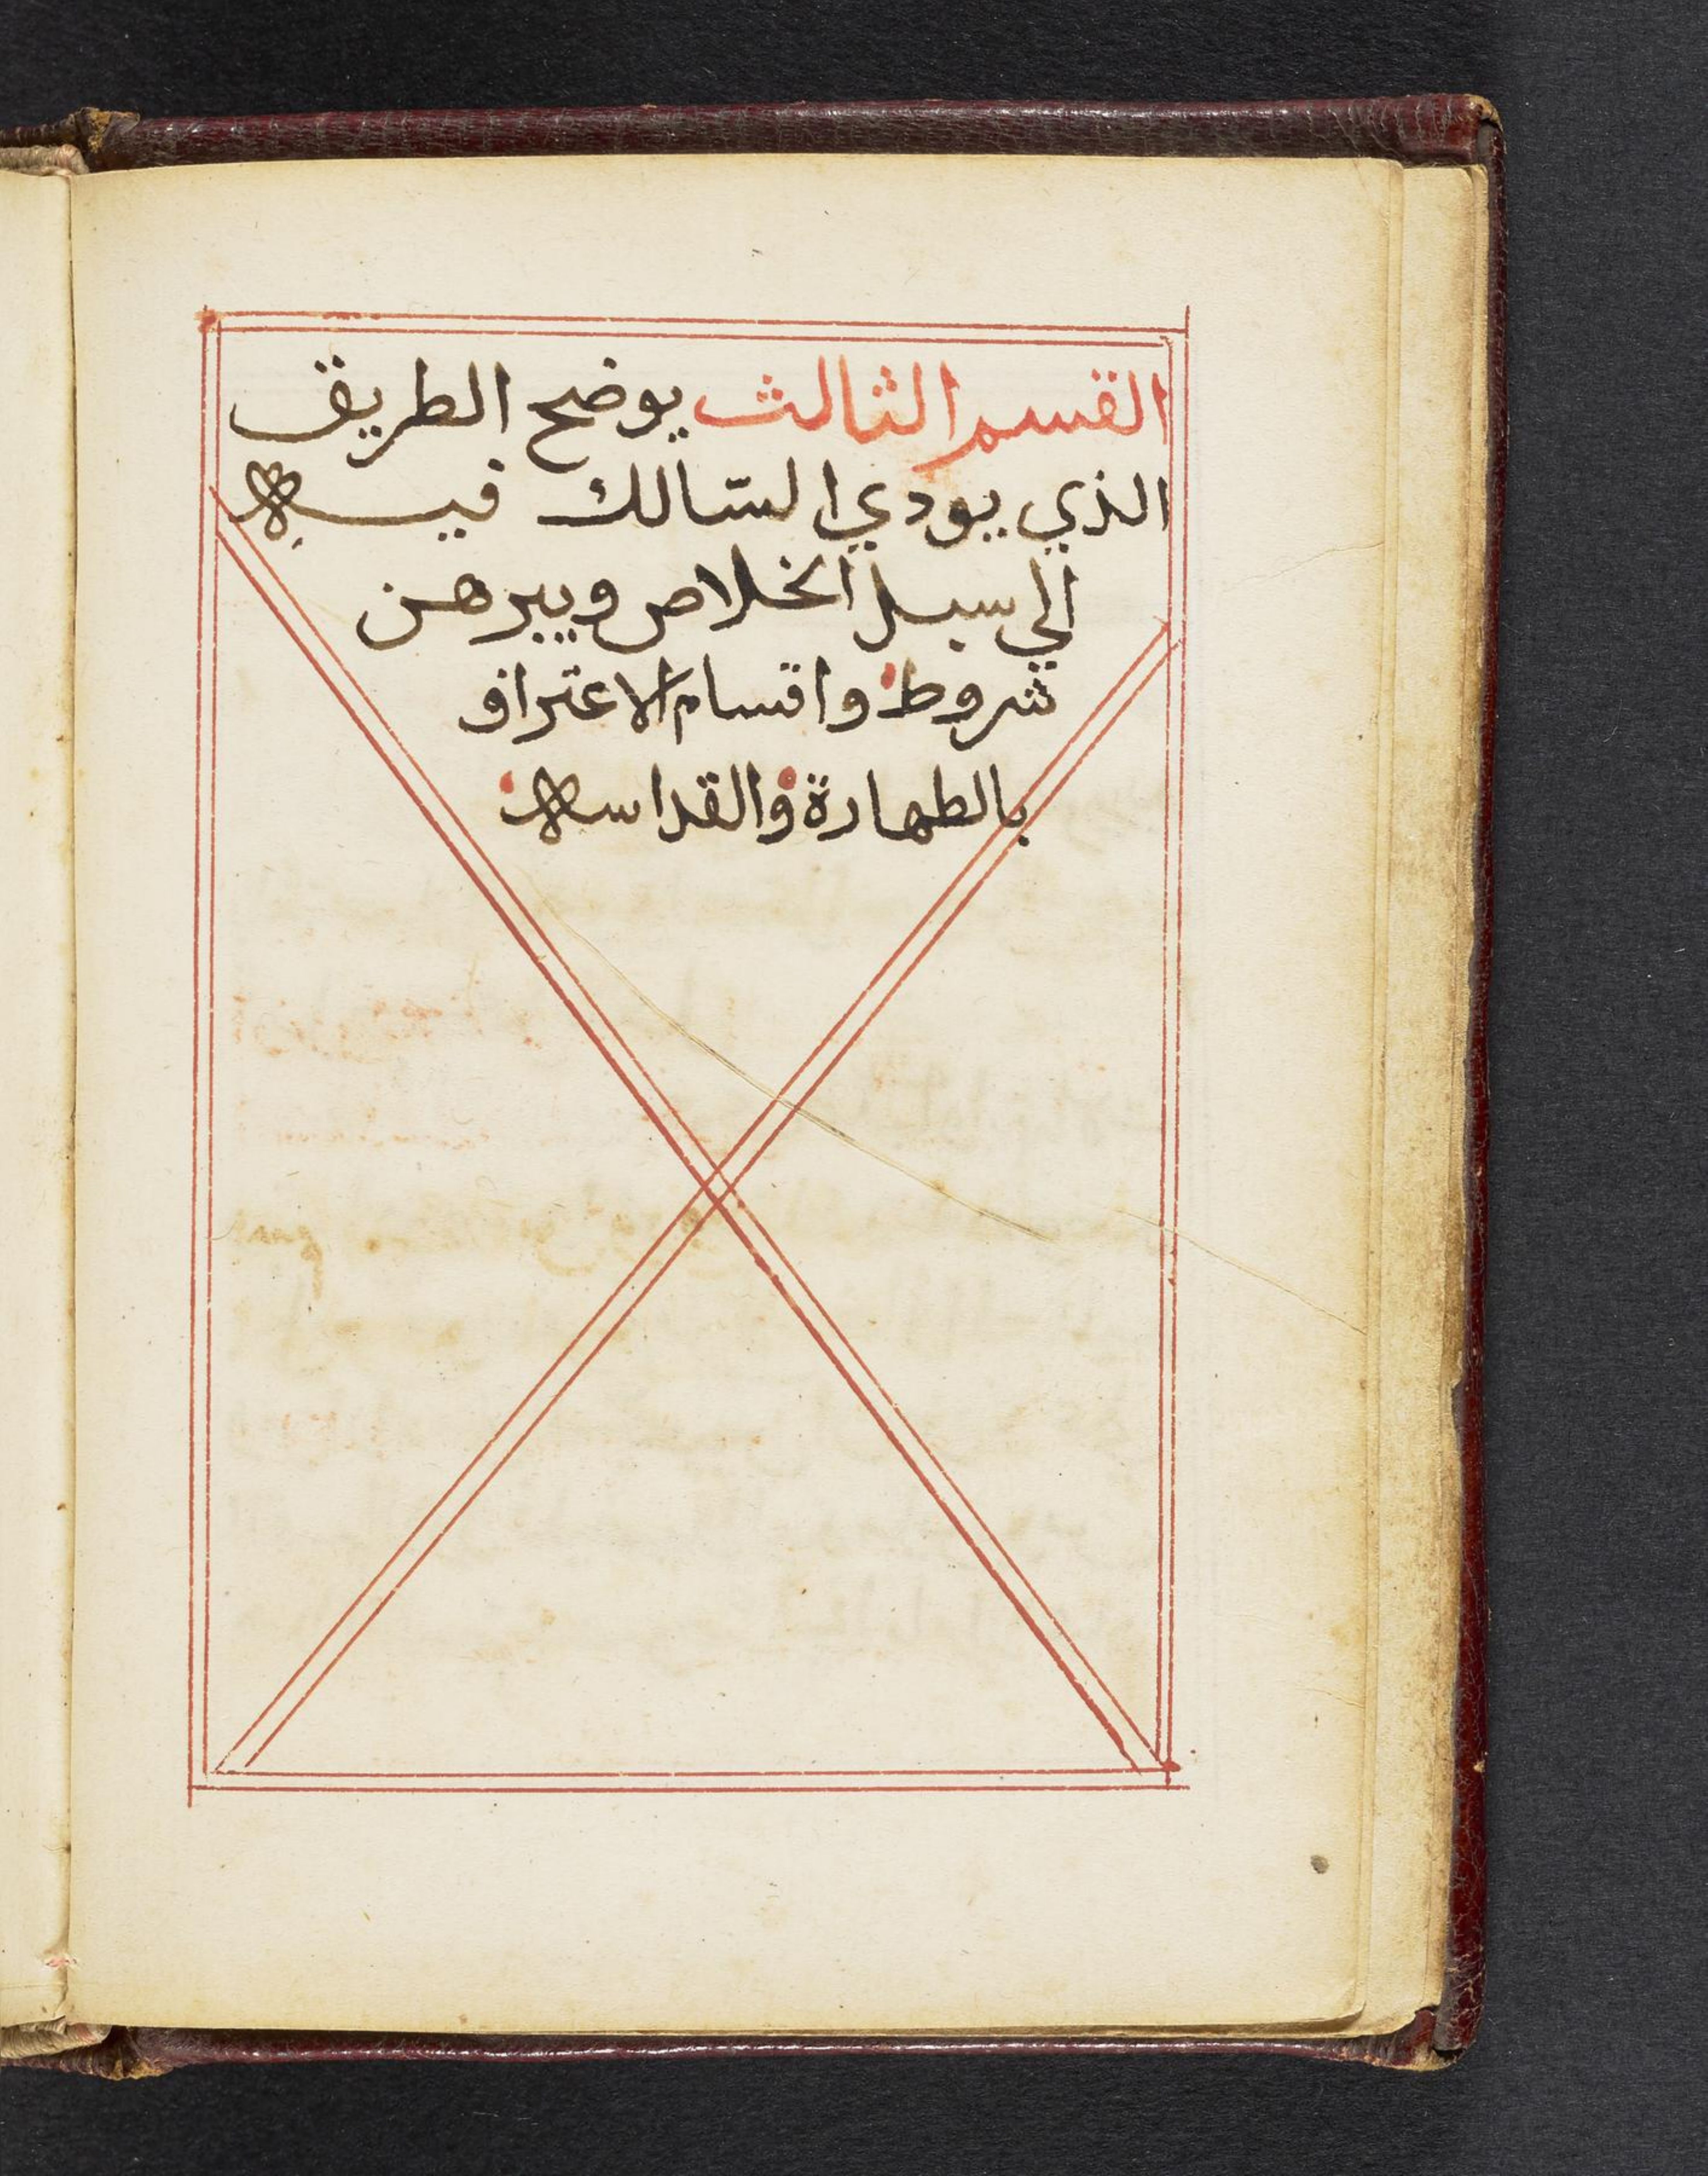 القسم الثالث يوضح الطريق
الذي يودي السّالك فيه
الي سبل الخلاص ويبرهن
شروط واقسام الاعتراف
بالطهارة والقداسه